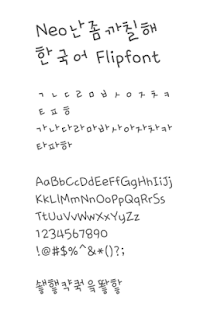 Neo난좀까칠해
한국어 Flipfont
ㄱㄴㄷㄹㅁㅂㅅㅇㅈㅊㅋ
ㅌㅍㅎ
가나다라마바사아자차카
타파하
AaBbCcDdEeFfGgHhIiJj
KkLlMmNnOoPpQqRrSs
TtUuVvWwXxYyZz
1234567890
!@#$%^&*()?;